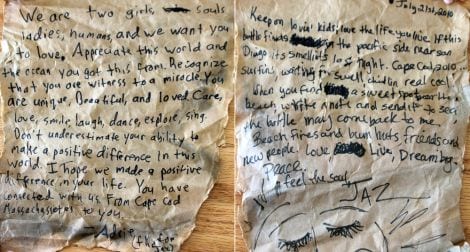 We are two girls souls
ladies, humans and we want you
to love. Appreciate this world and
the ocean you got this from. Recognize
that you are witness to a miracle. You
are unique, Beautiful, and loved. Care,
love, smile, laugh, dance, explore, sing.
Don't underestimate your ability to
make a positive difference in this
world. I hope we made a positive
difference in your life. You have
connected with us From Cape Cod
Massachessetes to you.
July 21st 2010
Keep on lovin kids, love the life you live. If this
bottle finds the pacific side near san
Diago its smellin its last night. Cape Cod 2010
surfing waiting for swell, chillin real cool
When you find a sweet spot
beach write a note and send it to sea
the bottle may come back to me.
Beach fires and bum nuts, friends and
new people. Love Live, Dream big.
Peace.
I feel the soul
JAZ